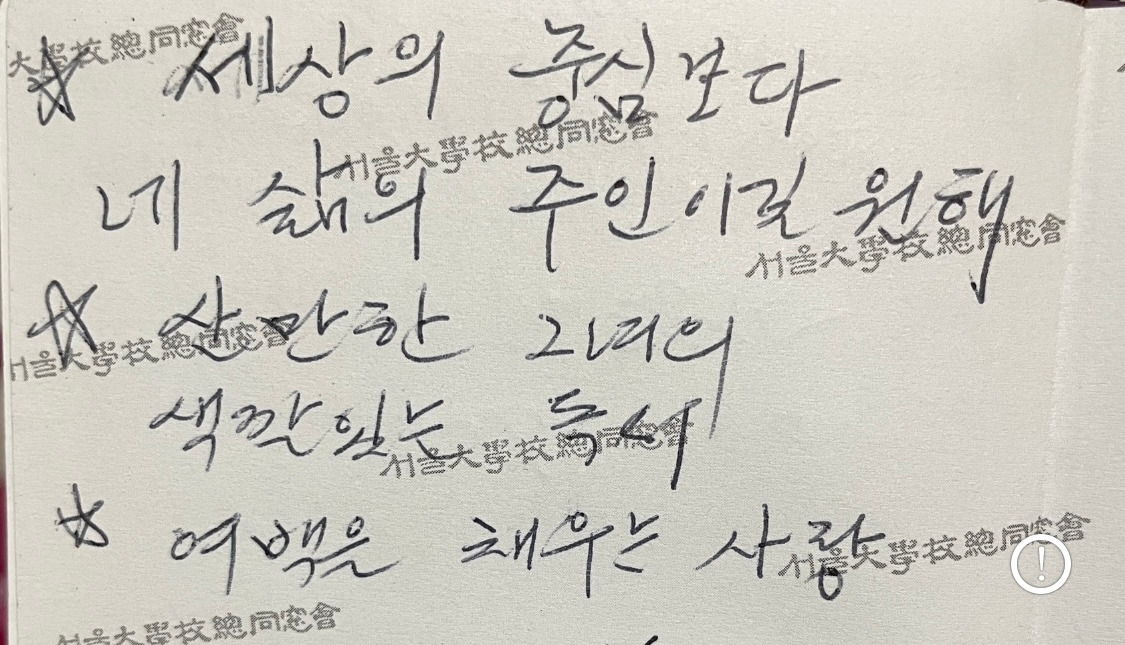 大學校總同窓會
☆ 세상의 중심보다
서울大學校總同窓會
네 삶의 주인이길 원해
서울大學校總同窓會
☆ 산만한 그녀의
서울大學校總同窓會
색깔있는 독서
서울大學校總同窓會
☆ 여백을 채우는 사랑
서울大學校總同窓會
서울大學校總同窓會